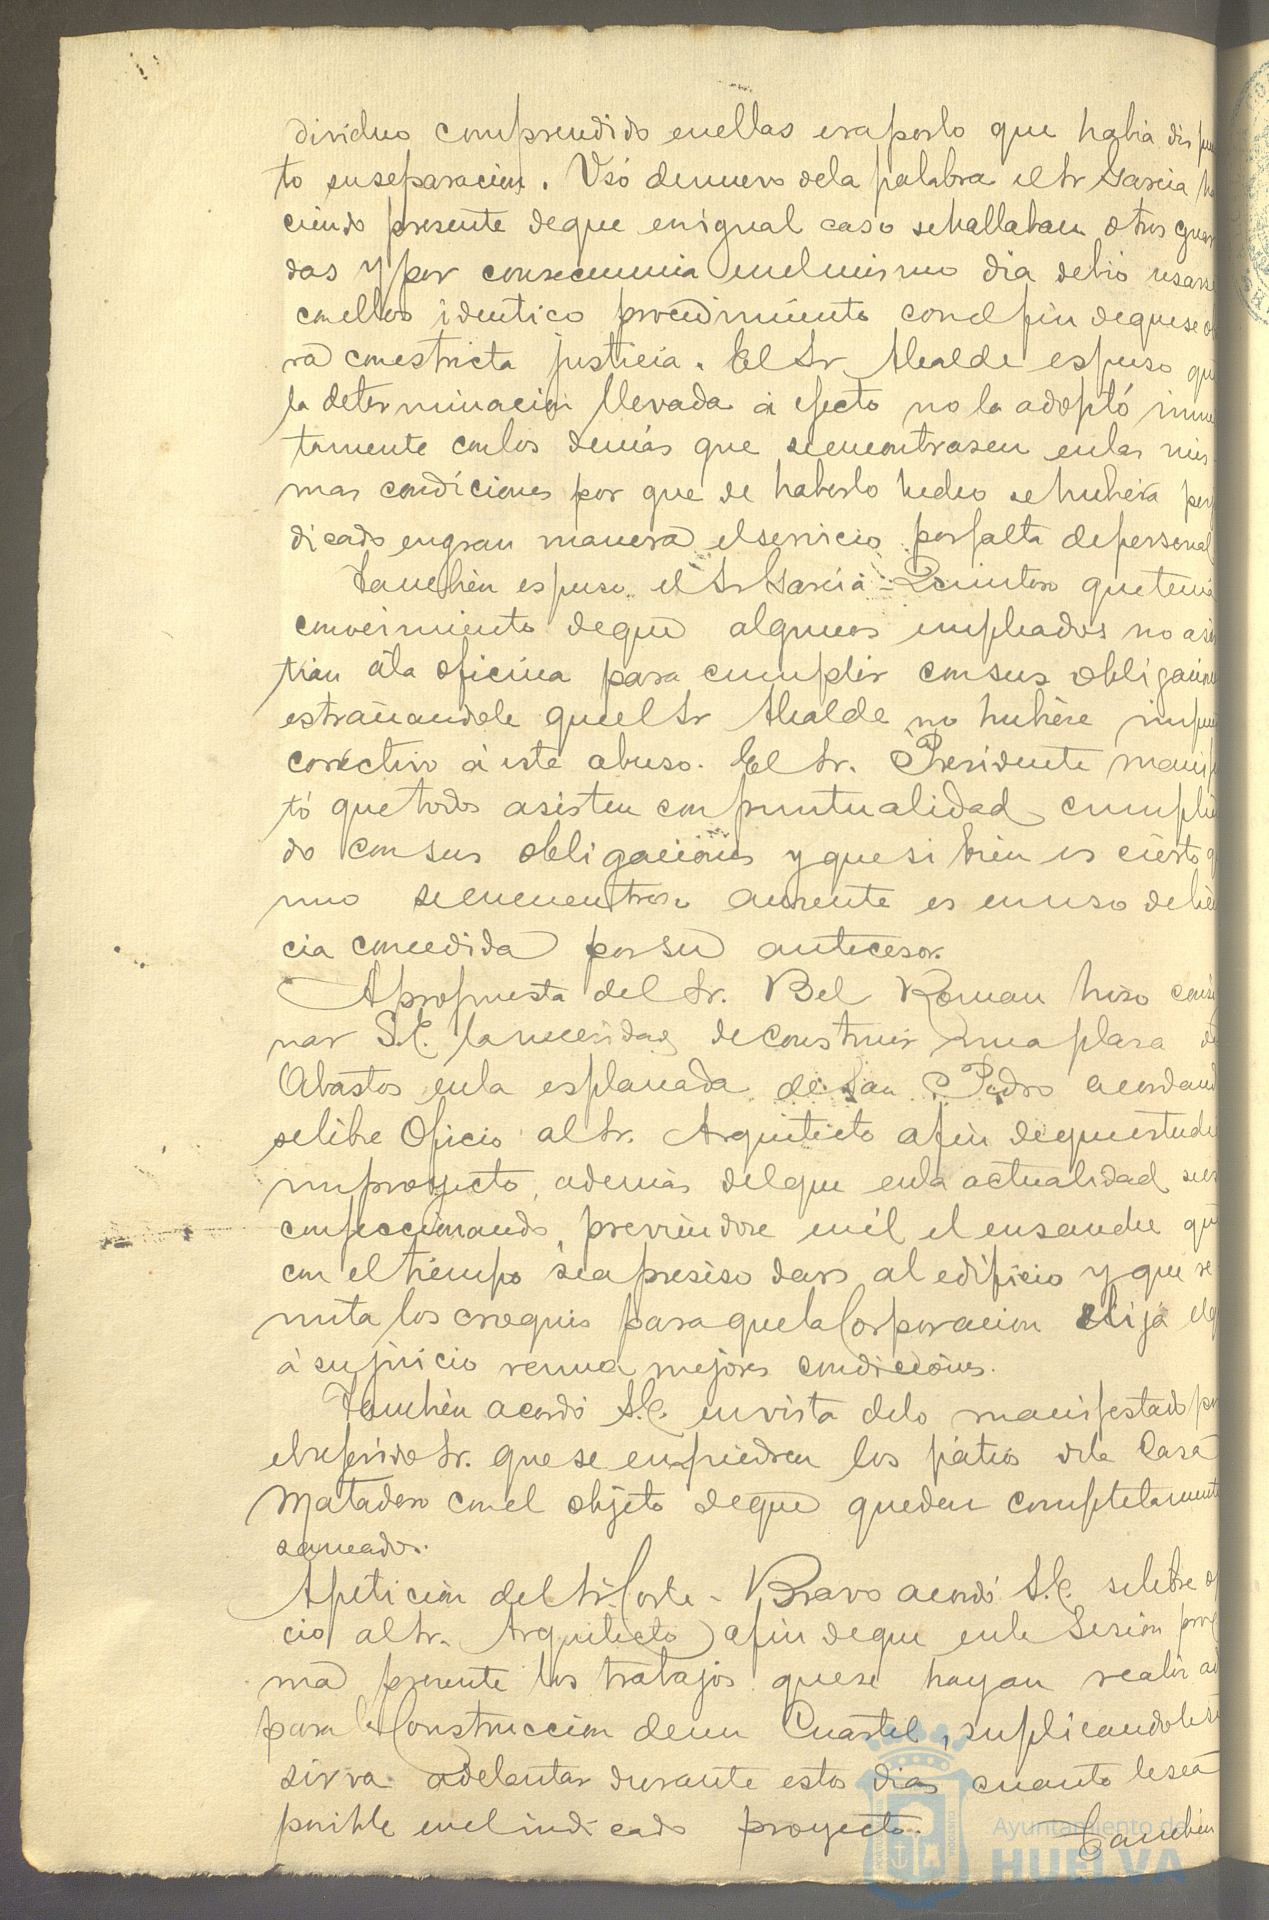 dividuo comprendido enellas eraporlo que habia dis
to suseparacion. Usó denuevo dela palabra elSr Garcia
ciendo presente deque enigual caso sehallaban otros guar
das y por consecuencia enelmismo dia debió usarse
conellos identico procedimiento conelfin dequese
ra conestricta justicia. El Sr Alcalde espuso que
la determinacion llevada á efecto no la adoptó
tamente conlos demás que seencontrasen enlas mis
mas condiciones por que de haberlo hecho sehubiera per
dicado engran manera elservicio porfalta depersonal
Tambien espuso el Sr Garcia = Quintero quetenia
conocimiento deque algunos empleados no asis
tian ála oficina para cumplir consus obligaciones
estrañandole queelSr Alcalde no hubiere
correctivo á este abuso. El Sr. Presidente manifes
tó quetodos asisten con puntualidad cumplien
do consus obligaciones yquesi bien es cierto
uno seencuentra ausente es enuso delicen
cia concedida porsu antecesor.
Apropuesta del Sr. Bel Roman hizo consig
nar S.E. lanecesidad deconstruir unaplaza de
Abastos enla esplanada de San Pedro acordando
selibre Oficio alSr. Arquitecto afin dequeestudie
unproyecto, además delque enla actualidad
confeccionando, previendose enél el ensanche que
con eltiempo seapresiso darse al edificio y que re
mita los croquis paraquelaCorporacion elija
á sujuicio reuna mejores condiciones.
Tambien acordó S.E. envista delo manifestado por
elreferido Sr. quese enpiedren los patios dela Casa
Matadero conel objeto deque queden completamente
saneados.
Apeticion del Sr. Corte = Bravo acordó S.E. selibre ofi
cio alSr. Arquitecto afin deque enla Sesion
ma presente los trabajos quese hayan
para laConstruccion deun Cuartel, suplicandole
sirva adelantar durante estos dias cuanto lesea
posible enelindicado proyecto.
Tambien
Ayuntamiento de
HUELVA